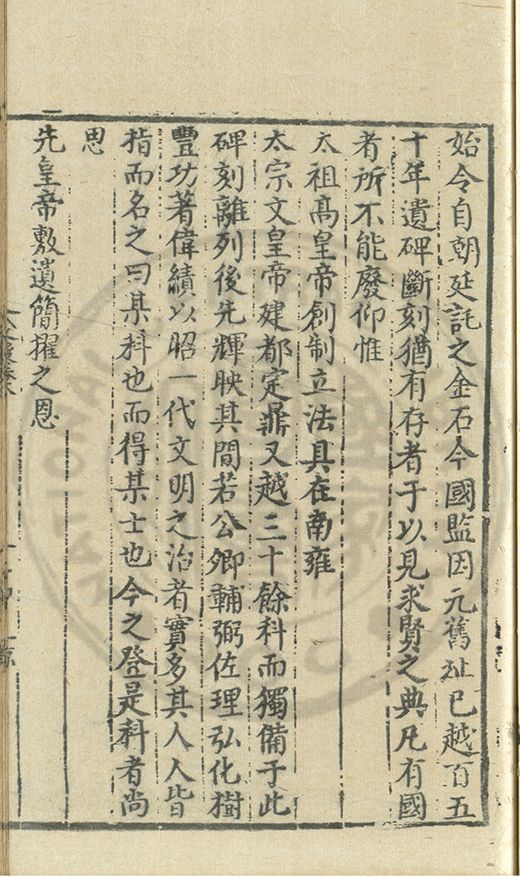 始令自朝廷託之金石今國監因元舊趾已越百五
十年遺碑斷刻猶有存者于以見求賢之典凡有國
者所不能廢仰惟
太祖高皇帝創制立法具在南雍
太宗文皇帝建都定鼎又越三十餘科而獨備于此
碑刻離列後先輝映其間若公卿輔弼佐理弘化樹
豐功著偉績以昭一代文明之治者實多其人人皆
指而名之曰某科也而得某士也今之登是科者尚
思
先皇帝敷遺簡擢之恩